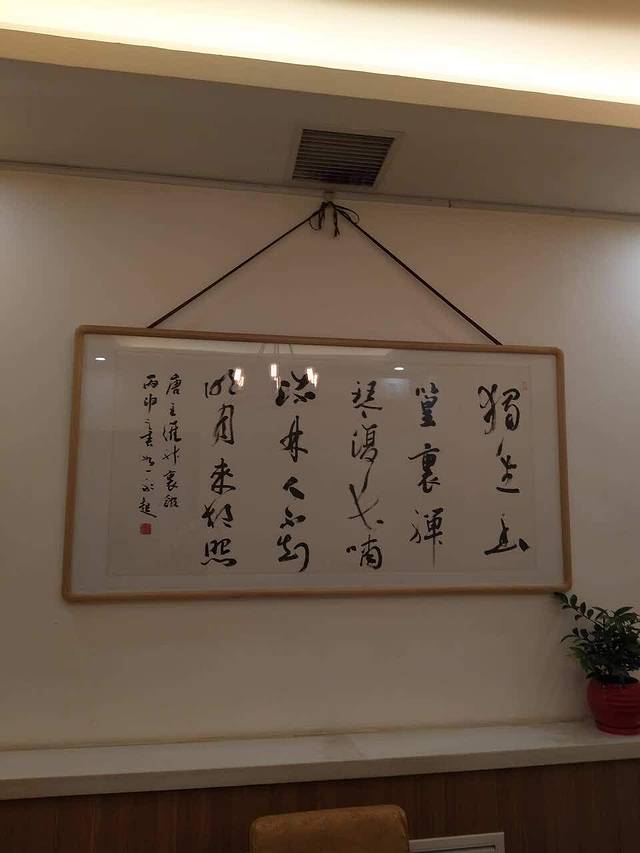 獨坐幽
篁裏彈
琴復長嘯
深林人不知
明月來相照
唐王維竹裏館
丙申